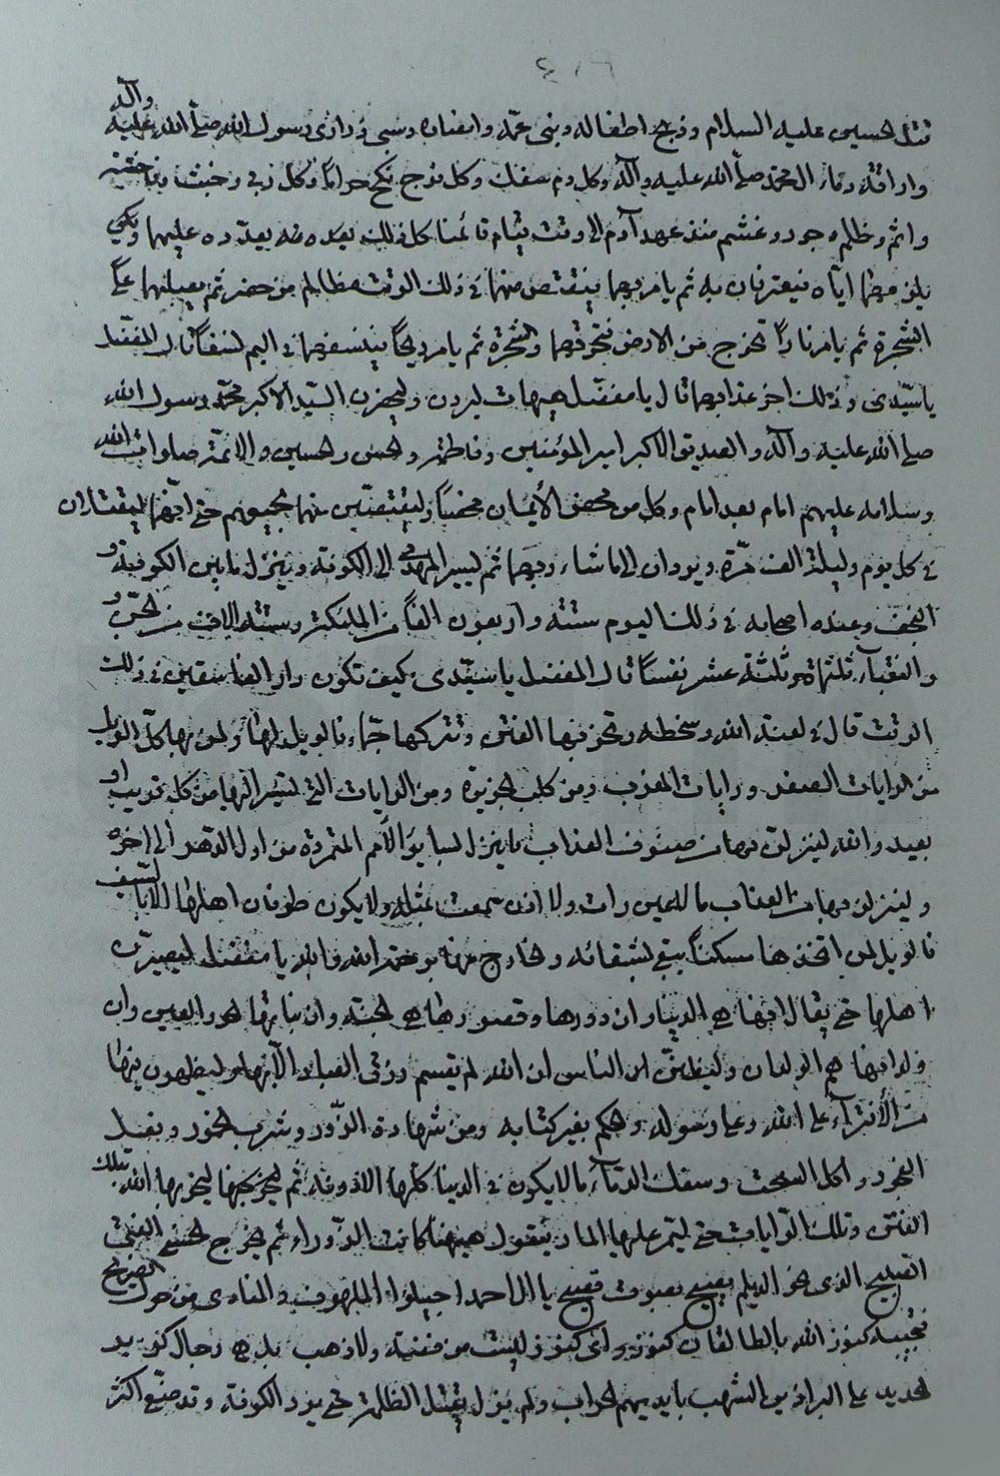 قتل الحسين عليه السلام وذبح اطفاله وبنى عمه وانصاره وسبى ذرارى رسول الله صلى الله عليه وآله
واراقة دماء آل محمد صلى الله عليه وآله وكل دم سفك وكل فرج نكح حراما وكل زنى وخبث وفاحشة
واثم وظلم وجور وغشم منذ عهد آدم الى وقت قيام قائمنا كل ذلك يعدده عليهما
ويلزمهما اياه فيعترفان به ثم يامر بهما فيقتص منهما فى ذلك الوقت مظالم من حضر ثم يصلبهما على
الشجرة ثم يامر نارا تخرج من الارض فتحرقهما والشجرة ثم يامر ريحا فينسفهما فى اليم نسفا قال المفضل
ياسيدى وذلك اخر عذابهما قال يا مفضل هيهات ليردن وليحضرن السيد الاكبر محمد رسول الله
صلى الله عليه وآله والصديق الاكبر امير المؤمنين وفاطمة والحسن والحسين والائمة صلوات الله
وسلامه عليهم امام بعد امام وكل من محض الايمان محضا وليقتصن منهما بجميعهم حتى انهما ليقتلان
فى كل يوم وليلة الف مرة ويردان الى ما شاء ربهما ثم يسير المهدى الى الكوفة وينزل ما بين الكوفة و
النجف وعنده اصحابه فى ذلك اليوم ستة واربعون الفا من الملئكة وستة الاف من الجن و
والنقباء ثلثمائة وثلثة عشر نفسا قال المفضل يا سيدى كيف تكون دار الفاسقين فى ذلك
الوقت قال فى لعنة الله وسخطه وتخربها الفتن وتتركها جماء فالويل لها ولمن بها كل الويل
من الرايات الصفر ورايات المغرب ومن كلب الجزيرة ومن الرايات التى تسير اليها من كل قريب او
بعيد والله لينزلن بها من صنوف العذاب ما ينزل بسائر الامم المتمردة من اول الدهر الى اخره
ولينزلن بها من العذاب ما لا عين رات ولا اذن سمعت بمثله ولا يكون طوفان اهلها الا بالسيف
فالويل لمن اتخذها مسكنا يبقى لشقائه والخارج منها برحمة الله والله يا مفضل ليصيرن
اهلها حتى يقال انها هى الدنيا وان دورها وقصورها هى الجنة وان بناتها الحور العين وان
ولدانها هم الولدان وليظنن ان الناس ان الله لم يقسم رزق العباد الا بها وليظهرن بها
من الافتراء على الله وعلى رسوله والحكم بغير كتابه ومن شهادة الزور وشرب الخمور وبفعل
الفجور واكل السحت وسفك الدماء ما لا يكون فى الدنيا كلها الا دونه ثم ليخربها الله بتلك
الفتن وتلك الرايات حتى ليمر عليها المار فيقول هيهنا كانت الزوراء ثم يخرج الحسنى الفتى
الصبيح الذى نحو الديلم يصيح بصوت فصيح يا آل احمد اجيبوا الملهوف والمنادى من حول الضريح
فتجيبه كنوز الله بالطالقان كنوز واى كنوز ليست من فضة ولا ذهب بل هى رجال كزبر
الحديد على البراذين الشهب بايديهم الحراب ولم يزل يقتل الظلمة حتى يرد الكوفة وقد صفى اكثر